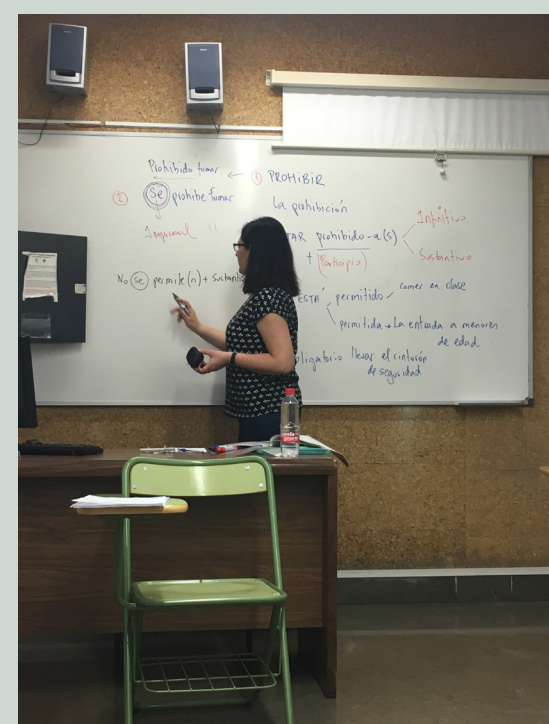 Prohibido fumar ← ① PROHIBIR
② Se prohibe fumar
La prohibición
Impersonal !!
TAR prohibido-a(s)
Infinitivo
Sustantivo
+ (Participio)
No se permite(n) + Sustant
ESTÁ permitido comer en clase
permitida → La entrada a menores
de edad
ligatorio llevar el cinturón
de seguridad